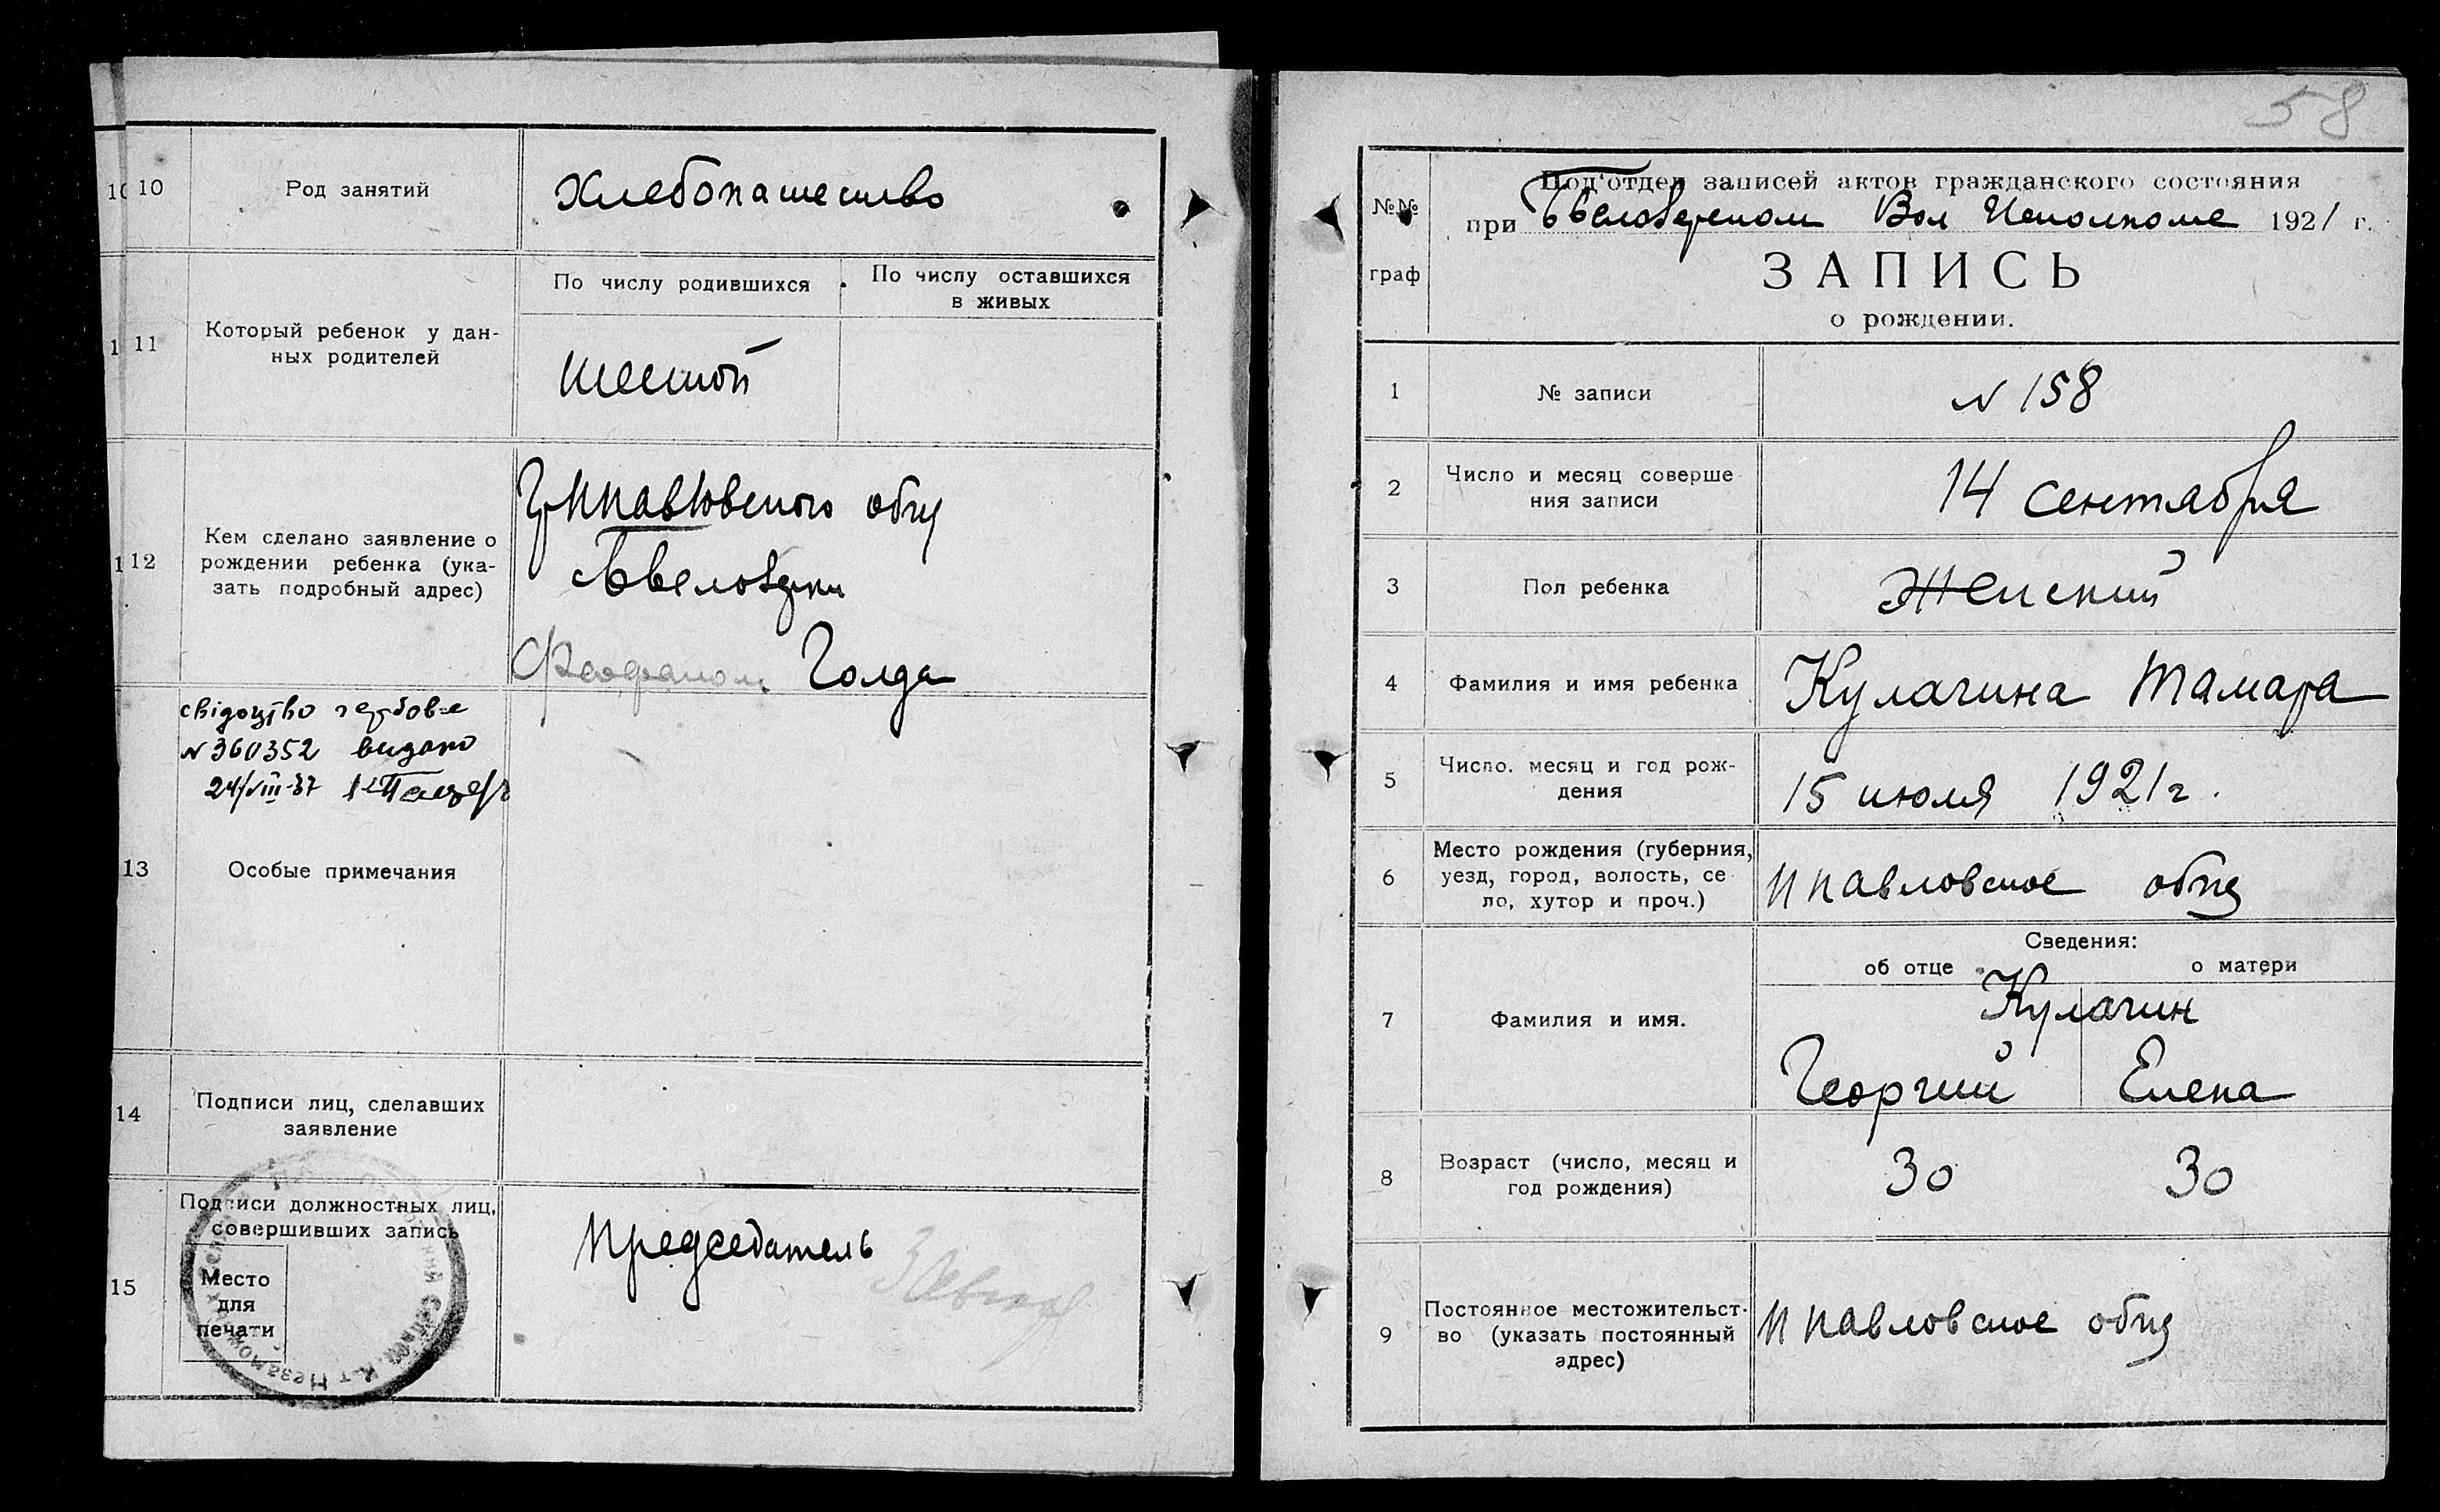 10
Род занятий
Хлебопашество
11
Который ребенок у дан-
ных родителей
По числу родившихся
По числу оставшихся
в живых
шестой
12
Кем сделано заявление о
рождении ребенка (ука-
зать подробный адрес)
обпу
Голда
свідоцтво гербове
№ 360352 видано
24/VIII-37
13
Особые примечания
14
Подписи лиц, сделавших
заявление
15
Подписи должностных лиц,
совершивших запись
Место
для
печати
Председатель
58
№№
граф
Под'отдел записей актов гражданского состояния
при Вол Исполкоме 1921 г.
ЗАПИСЬ
о рождении.
1
№ записи
№ 158
2
Число и месяц соверше
ния записи
14 сентября
3
Пол ребенка
Женский
4
Фамилия и имя ребенка
Кулагина Тамара
5
Число. месяц и год рож-
дения
15 июля 1921 г.
6
Место рождения (губерния,
уезд, город, волость, се
ло, хутор и проч.)
Ппавловское обпу
7
Фамилия и имя.
Сведения:
об отце
о матери
Кулагин
Георгий
Елена
8
Возраст (число, месяц и
год рождения)
30
30
9
Постоянное местожительст-
во (указать постоянный
адрес)
Ппавловское обпу